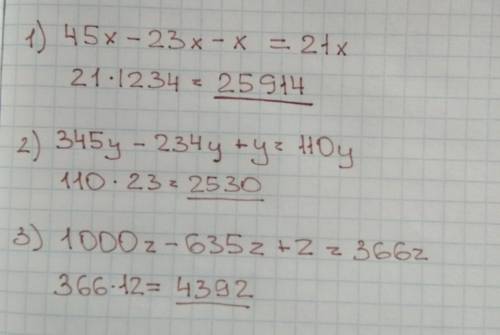 1) 45x - 23x - x = 21x
21·1234 = 25914
2) 345y - 234y + y = 110y
110·23 = 2530
3) 1000z - 635z + z = 366z
366·12 = 4392